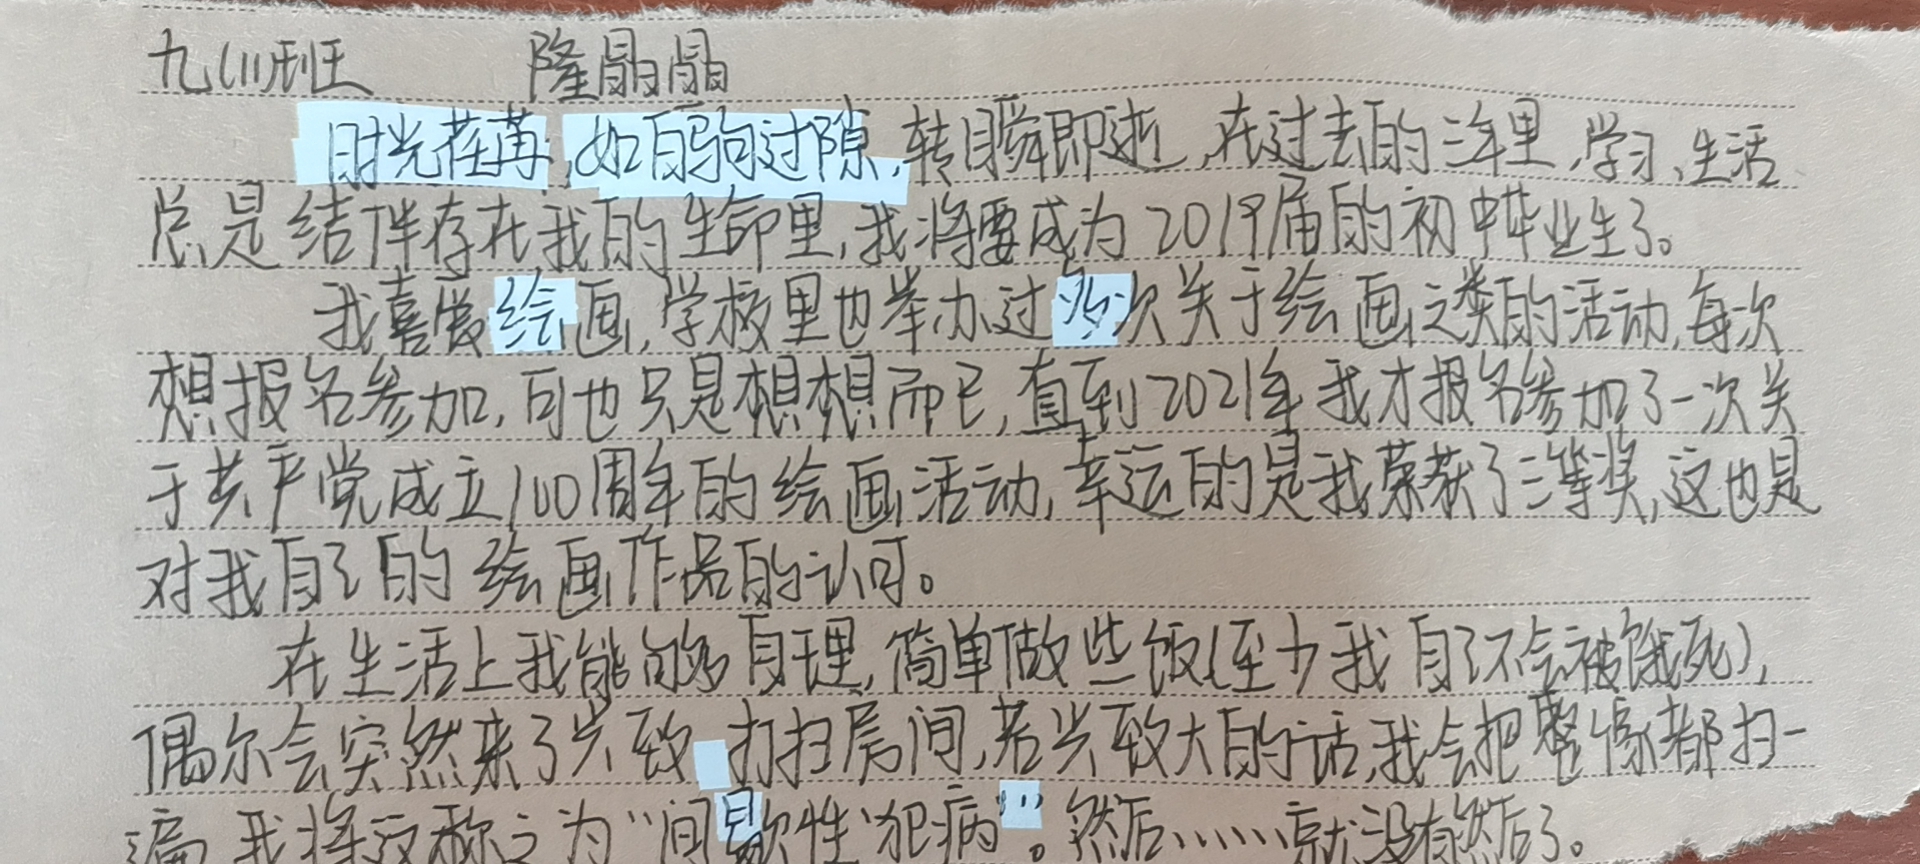 九(1)班 隆晶晶
时光荏苒,如白驹过隙,转瞬即逝,在过去的三年里,学习、生活
总是结伴存在我的生命里,我将要成为2019届的初中毕业生了。
我喜爱绘画,学校里也举办过多次关于绘画之类的活动,每次
想报名参加,可也只是想想而已,直到2021年我才报名参加了一次关
于共产党成立100周年的绘画活动,幸运的是我荣获了三等奖,这也是
对我自己的绘画作品的认可。
在生活上我能够自理,简单做些饭(至少我自己不会被饿死),
偶尔会突然来了兴致 打扫房间,若兴致大的话,我会把整个家都扫一
遍,我将这称之为“间歇性‘犯病’”。然后……就没有然后了。